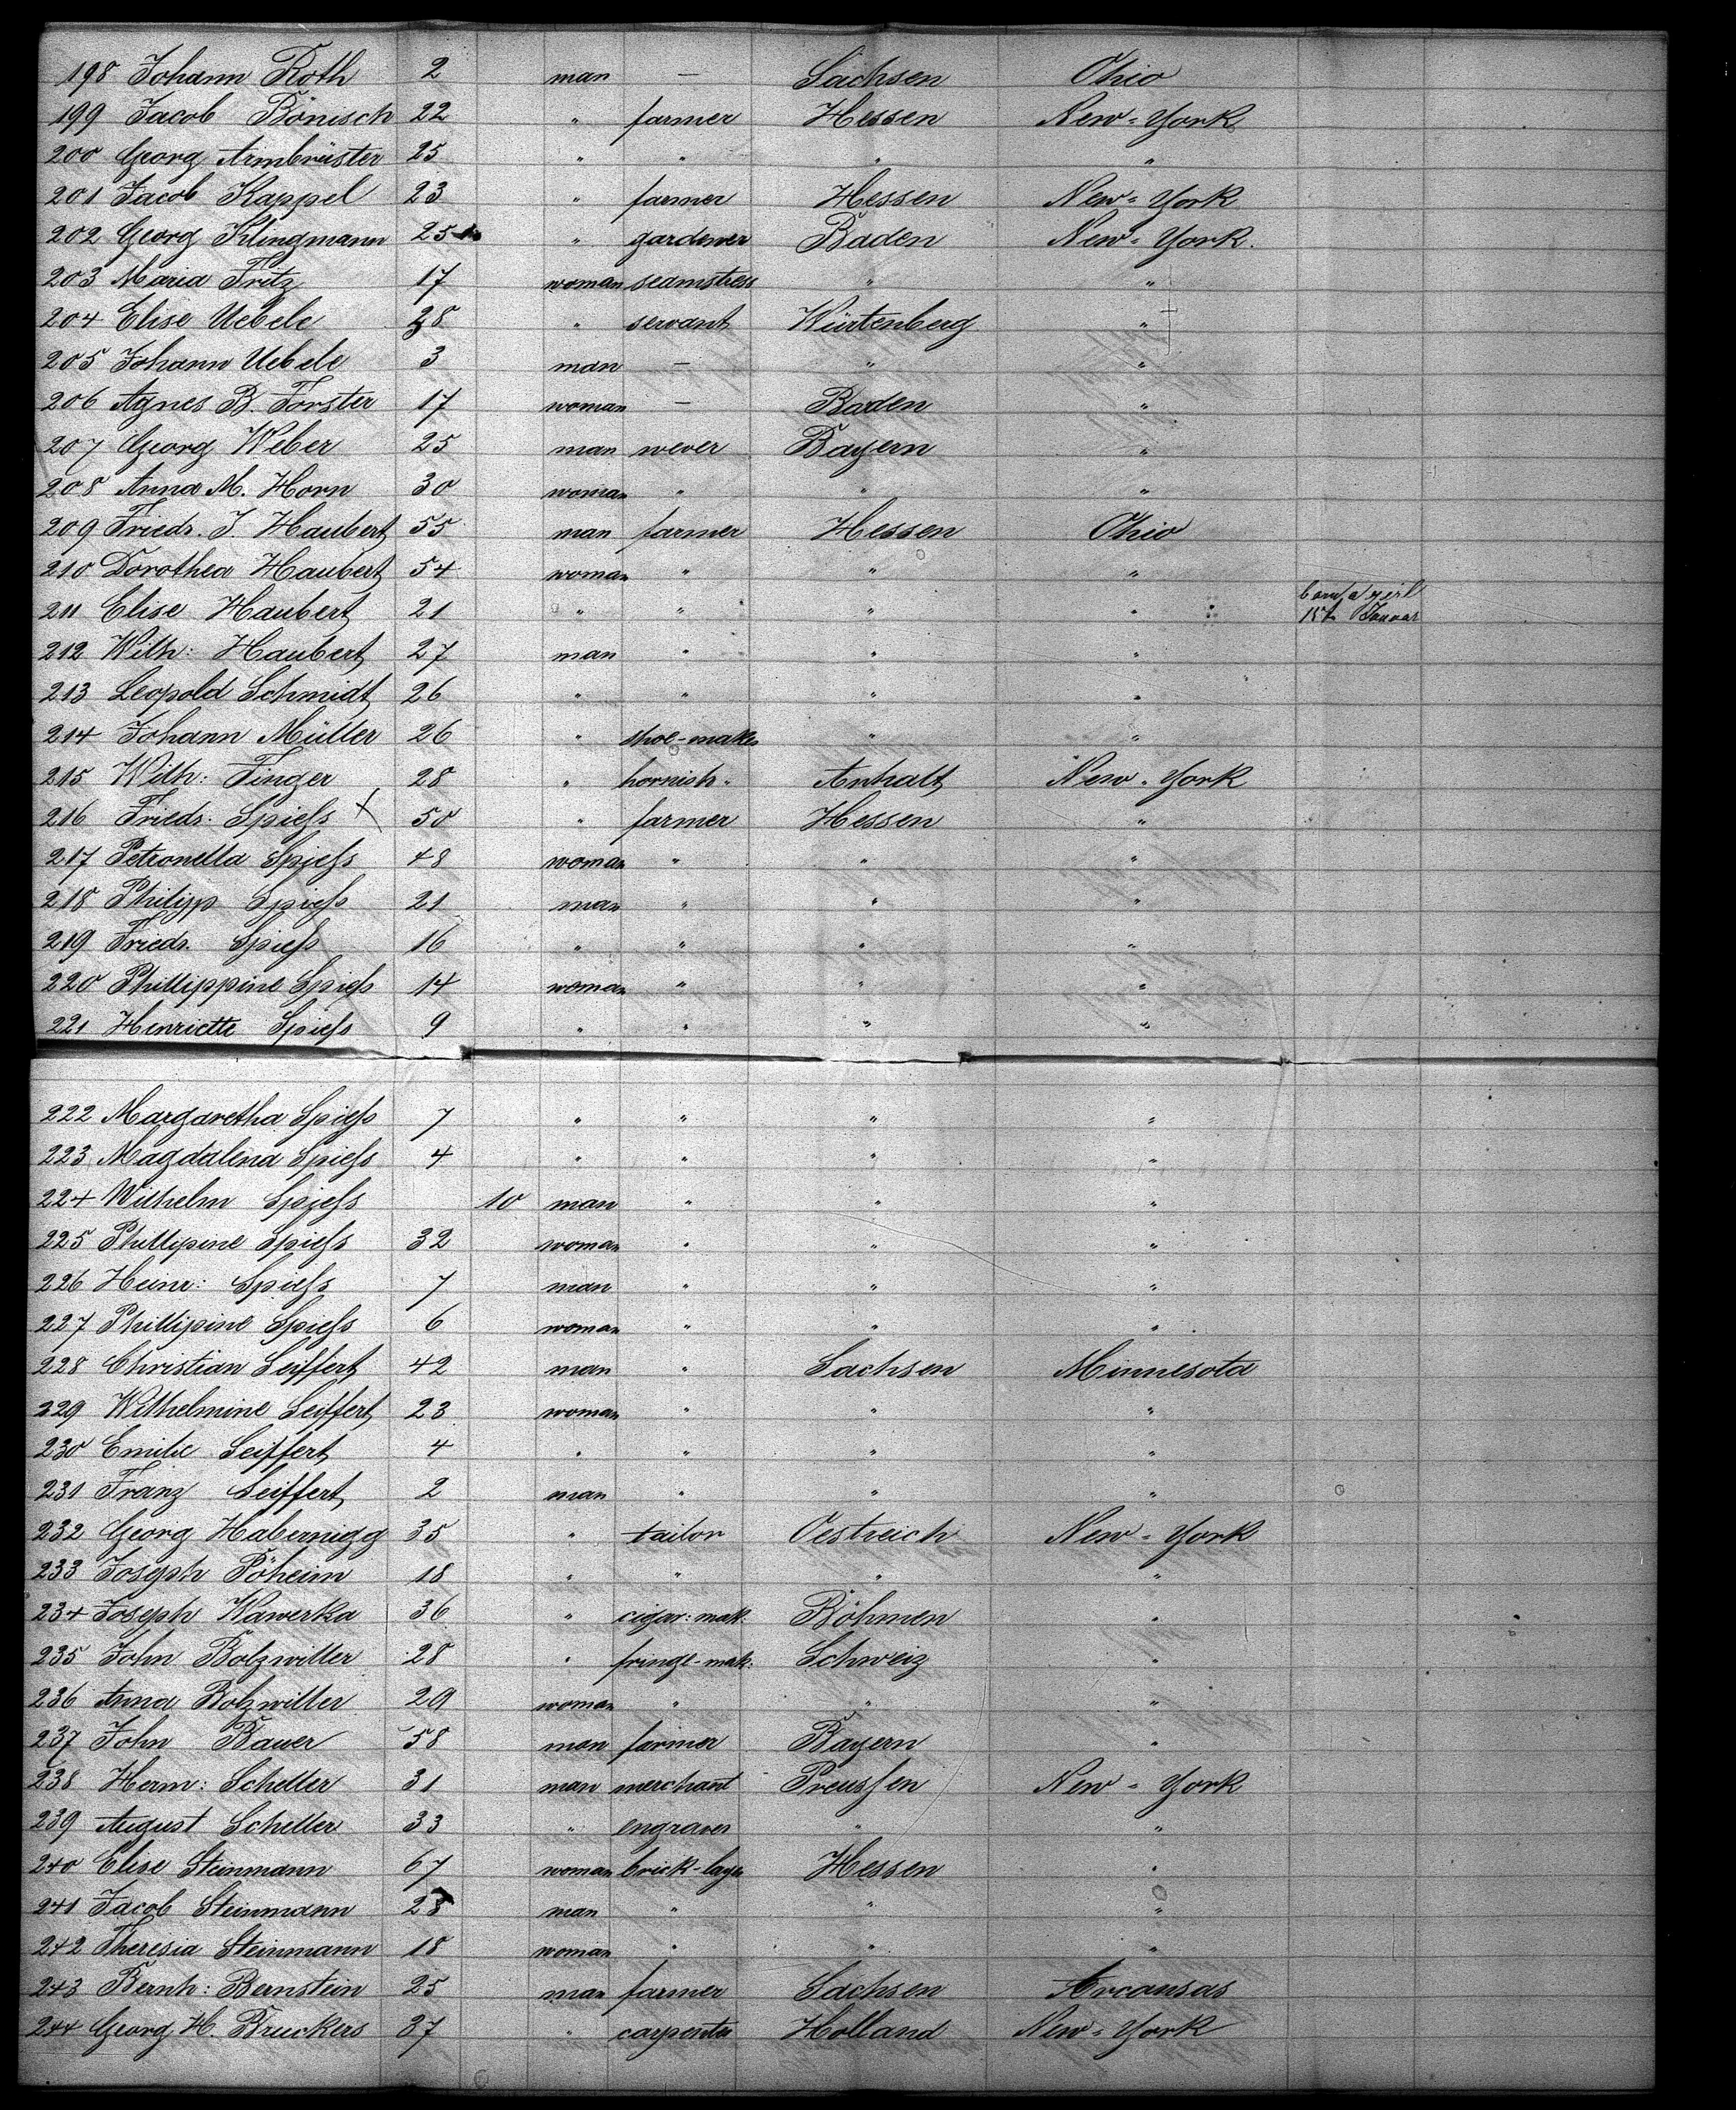 198 Johann Roth 2 man — Sachsen Ohio
199 Jacob Bönisch 22 " farmer Hessen New-York
200 Georg Armbrüster 25 " " " "
201 Jacob Kappel 23 " farmer Hessen New-York
202 Georg Klingmann 25 " gardener Baden New-York.
203 Maria Fritz 17 woman seamstress " "
204 Elise Uebele 28 " servant Würtenberg "
205 Johann Uebele 3 man — " "
206 Agnes B. Forster 17 woman — Baden "
207 Georg Weber 25 man wever Bayern "
208 Anna M. Horn 30 woman " " "
209 Friedr. J. Haubert 55 man farmer Hessen Ohio
210 Dorothea Haubert 54 woman " " "
211 Elise Haubert 21 " " " " born a girl
15th Januar
212 Wilh: Haubert 27 man " " "
213 Leopold Schmidt 26 " " " "
214 Johann Müller 26 " shoe-maker " "
215 Wilh: Finger 28 " Anhalt New-York
216 Friedr: Spieß X 50 " farmer Hessen "
217 Petronella Spieß 48 woman " " "
218 Philipp Spieß 21 man " " "
219 Friedr. Spieß 16 " " " "
220 Phillippine Spieß 14 woman " " "
221 Henriette Spieß 9 " " " "
222 Margaretha Spieß 7 " " " "
223 Magdalena Spieß 4 " " " "
224 Wilhelm Spieß 10 man " " "
225 Phillipine Spieß 32 woman " " "
226 Heinr: Spieß 7 man " " "
227 Phillipine Spieß 6 woman " " "
228 Christian Seiffert 42 man " Sachsen Minnesota
229 Wilhelmine Seiffert 23 woman " " "
230 Emilie Seiffert 4 " " " "
231 Franz Seiffert 2 man " " "
232 Georg Habernigg 35 " tailor Oestreich New-York
233 Joseph Pöheim 18 " " " "
234 Joseph Wawerka 36 " cigar: mak: Böhmen "
235 John Bolzwiller 28 " fringe-mak: Schweiz "
236 Anna Bolzwiller 29 woman " " "
237 John Bauer 58 man farmer Bayern "
238 Herm: Scheller 31 man merchant Preussen New-York
239 August Scheller 33 " engraver " "
240 Elise Steinmann 67 woman brick-layer Hessen "
241 Jacob Steinmann 23 man " " "
242 Theresia Steinmann 18 woman " " "
243 Bernh: Bernstein 25 man farmer Sachsen Arcansas
244 Georg H. Bruckers 37 " carpenter Holland New-York